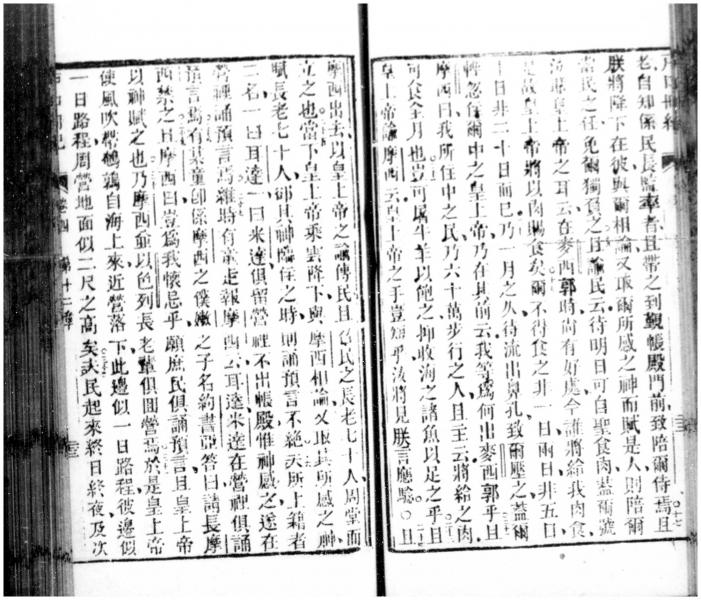 老自知係民長監率者且帶之到覲帳殿門前致陪爾侍焉且
朕將降下在彼與爾相論又取爾所感之神而賦是人則陪爾
當民之任免爾獨負之且諭民云待明日可自聖食肉蓋爾號
泣皇上帝之耳云在麥西郭時尚有好處今誰將給我肉食
是故皇上帝將以肉賜食矣爾不得食之非一日兩日非五日
十日非二十日而已乃一月之久待流出鼻孔致爾壓之蓋爾
輕忽住爾中之皇上帝乃在其前云我等爲何出麥西郭乎且
摩西曰我所住中之民乃六十萬步行之人且主云將給之肉
可食全月也豈可屠牛羊以飽之抑收海之諸魚以足之乎且
皇上帝諭摩西云皇上帝之手豈短乎汝將見朕言應驗○且
摩西出去以皇上帝之諭傳民且召民之長老七十人周堂而
立之也當下皇上帝乘雲降下與摩西相論又取其所感之神
賦長老七十人卻其神臨住之時則誦預言不絕夫所上籍者
二名一曰耳達一曰米達俱留營裡不出帳殿惟神感之遂在
營裡誦預言焉維時有童走報摩西云耳達米達在營裡俱誦
預言焉有某童卽係摩西之僕嫩之子名約書亞答曰請長摩
西禁之且摩西曰豈爲我懷忌乎願庶民俱誦預言且皇上帝
以神賦之也乃摩西並以色列長老輩俱回營焉於是皇上帝
使風吹帶鵪鶉自海上來近營落下此邊似一日路程彼邊似
一日路程周營地面似二尺之高矣夫民起來終日終夜及次
卷四 第十二章